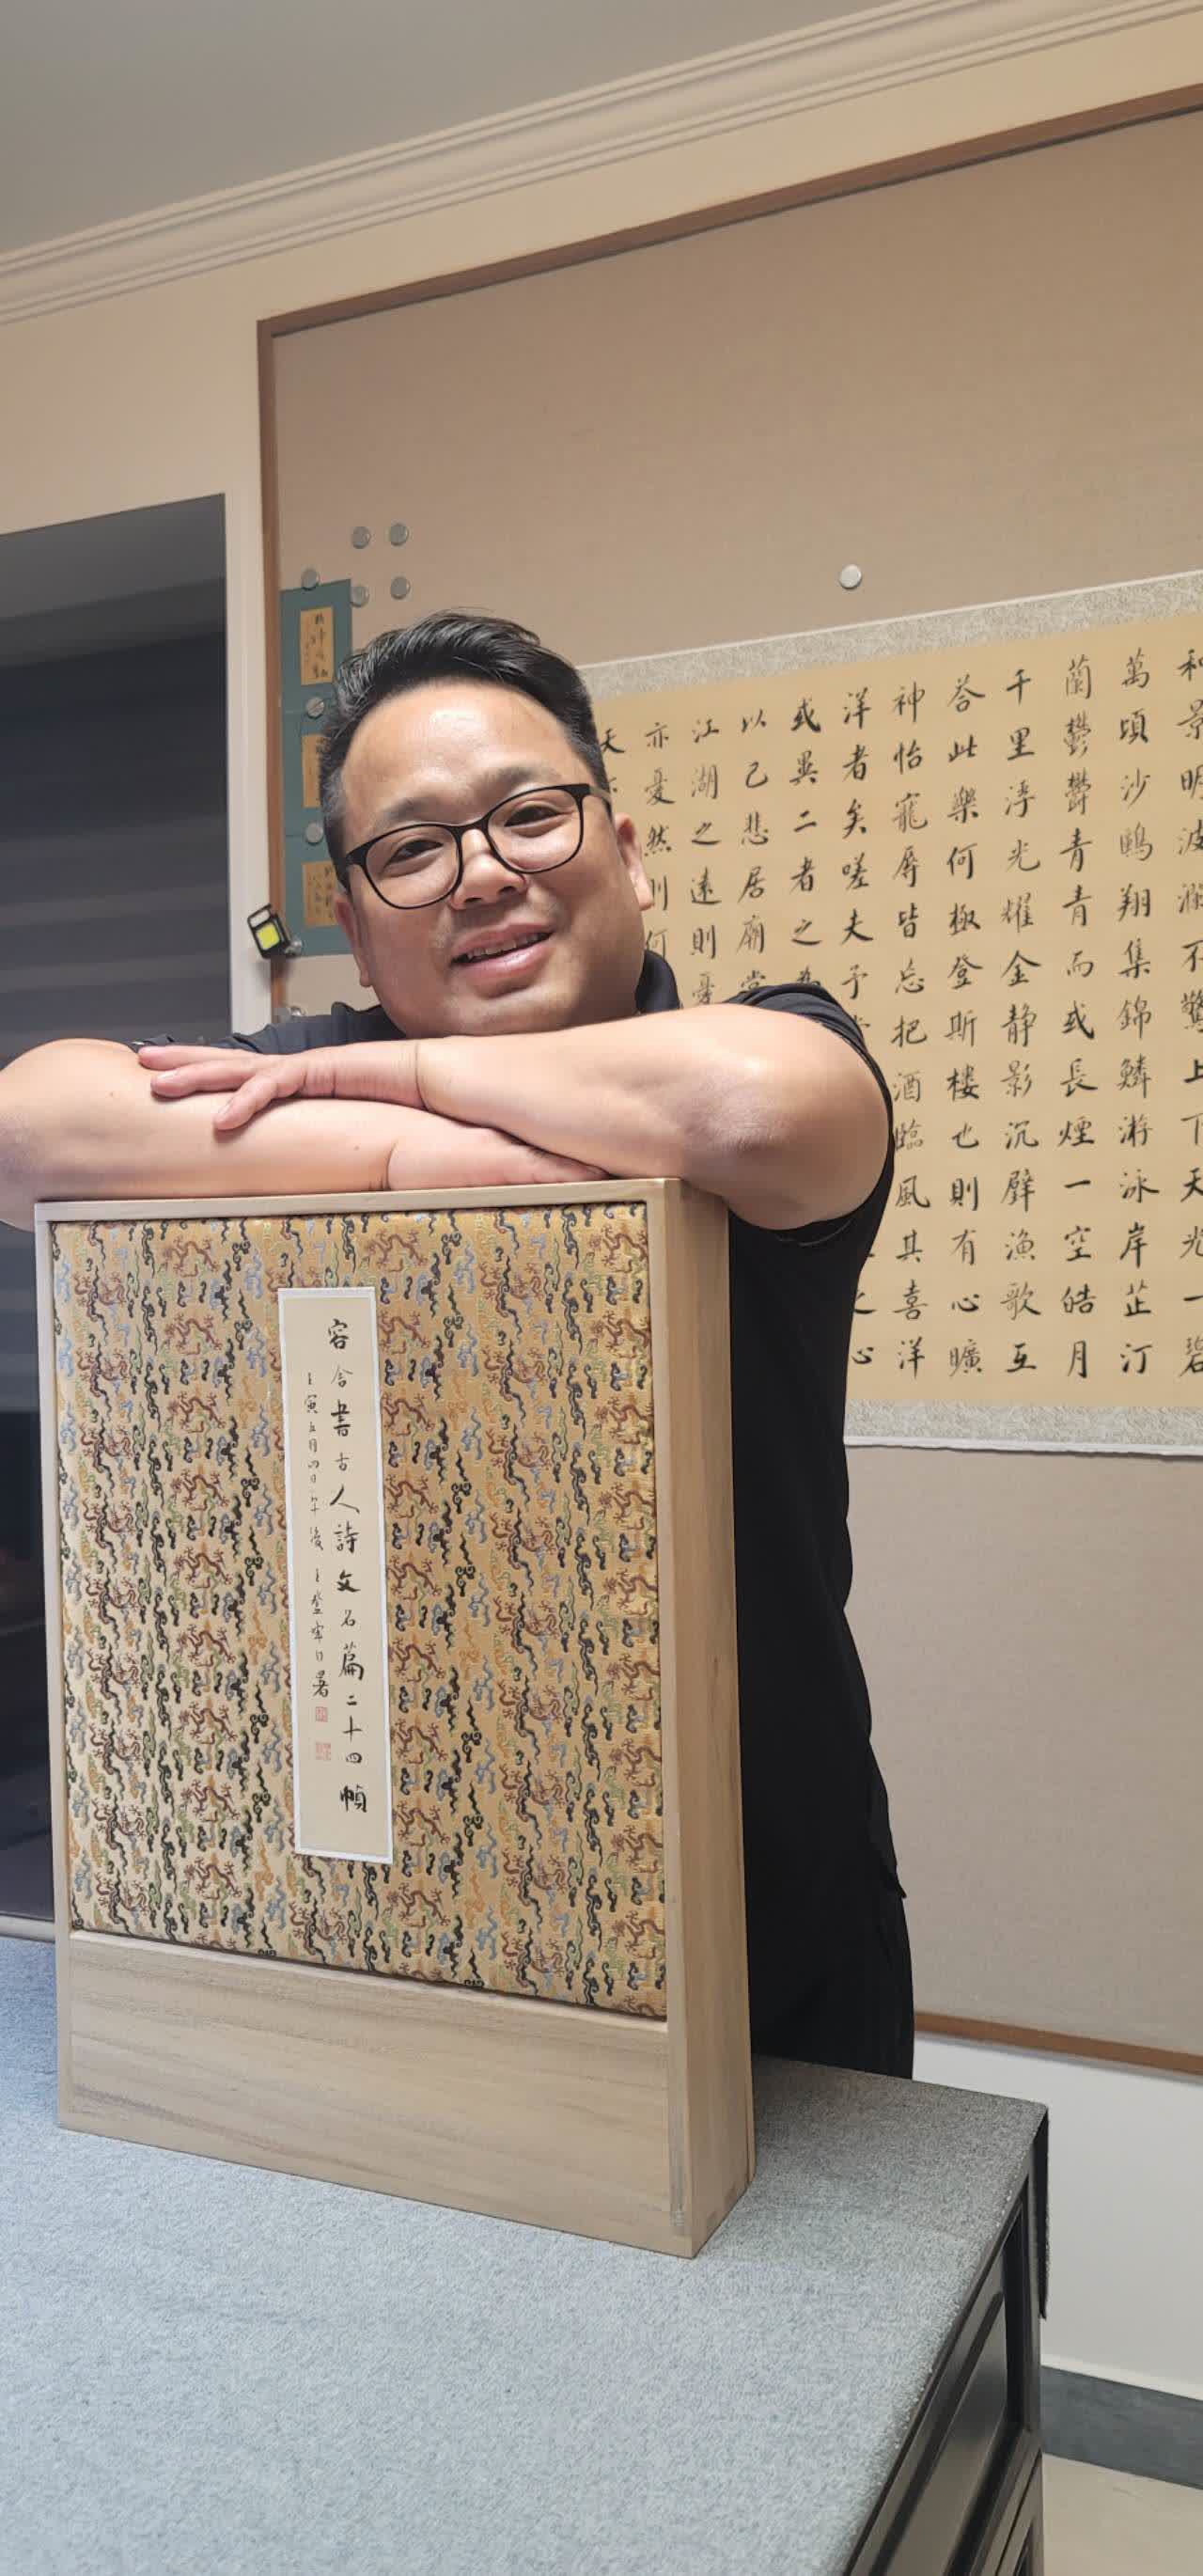 容舍書古人詩文名篇二十四幀
壬寅五月四日午後
和景明波瀾不驚上下天光一碧
萬頃沙鷗翔集錦鱗游泳岸芷汀
蘭鬱鬱青青而或長煙一空皓月
千里浮光耀金静影沉璧漁歌互
答此樂何極登斯楼也則有心曠
神怡寵辱皆忘把酒臨風其喜洋
洋者矣嗟夫予
或異二者之為
以己悲居廟堂
江湖之遠則憂
亦憂然則何
天